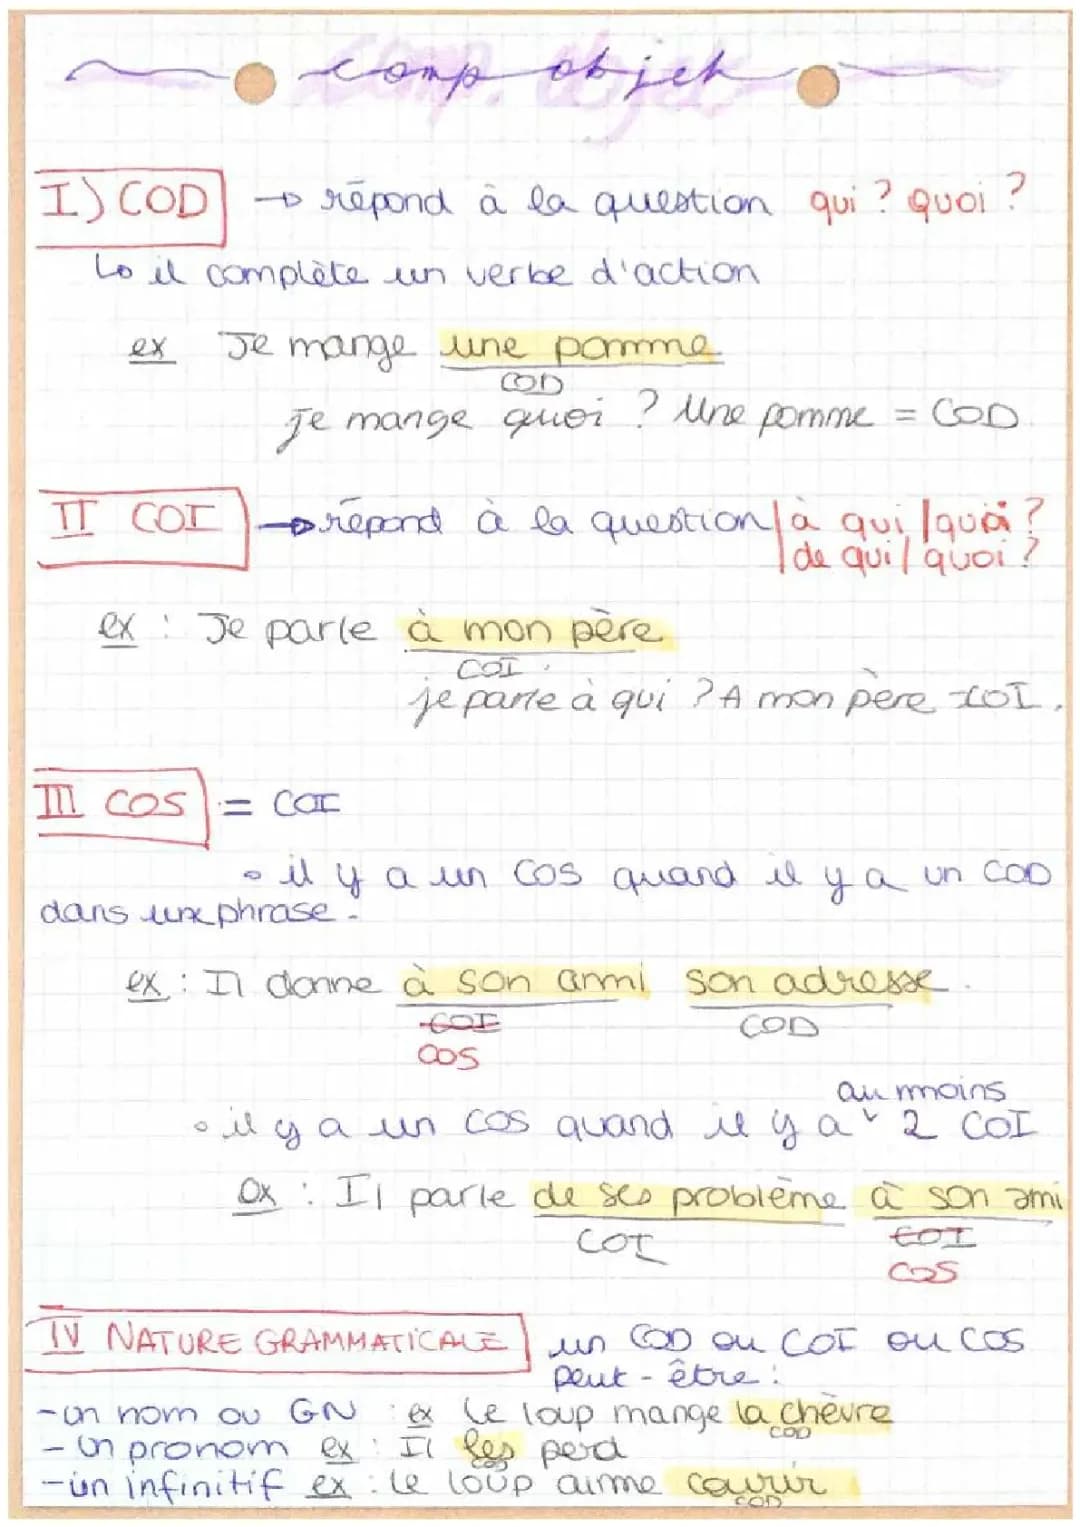 comp. objet
I) COD → répond à la question qui ? quoi ?
↳ il complète un verbe d'action
ex Je mange une pomme
COD
je mange quoi ? Une pomme = COD
II COI → répond à la question | à qui / quoi ?
| de qui / quoi ?
ex : Je parle à mon père
COI.
je parle à qui ? A mon père = COI.
III COS = COI
• il y a un COS quand il y a un COD
dans une phrase.
ex : Il donne à son ami son adresse.
COI COD
COS
au moins
• il y a un COS quand il y a ˅ 2 COI
ex : Il parle de ses problème à son ami
COI COI
COS
IV NATURE GRAMMATICALE un COD ou COI ou COS
peut-être :
-un nom ou GN : ex le loup mange la chèvre
COD
- un pronom ex : Il les perd
COD
-un infinitif ex : le loup aime courir
COD